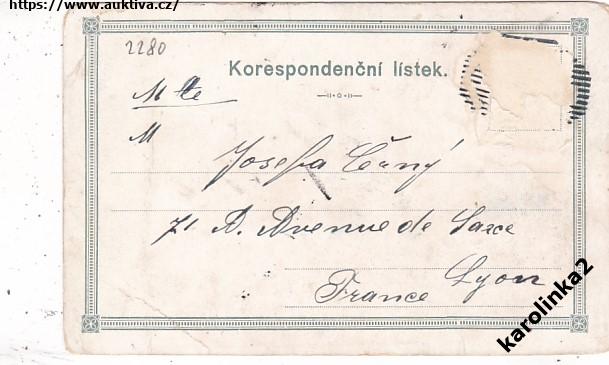 https://www.auktiva.cz/
2280
Korespondenční lístek.
M lle
M
Josefa Černý
71 A. Avenue de Saxe
Lyon
France
karolinka2